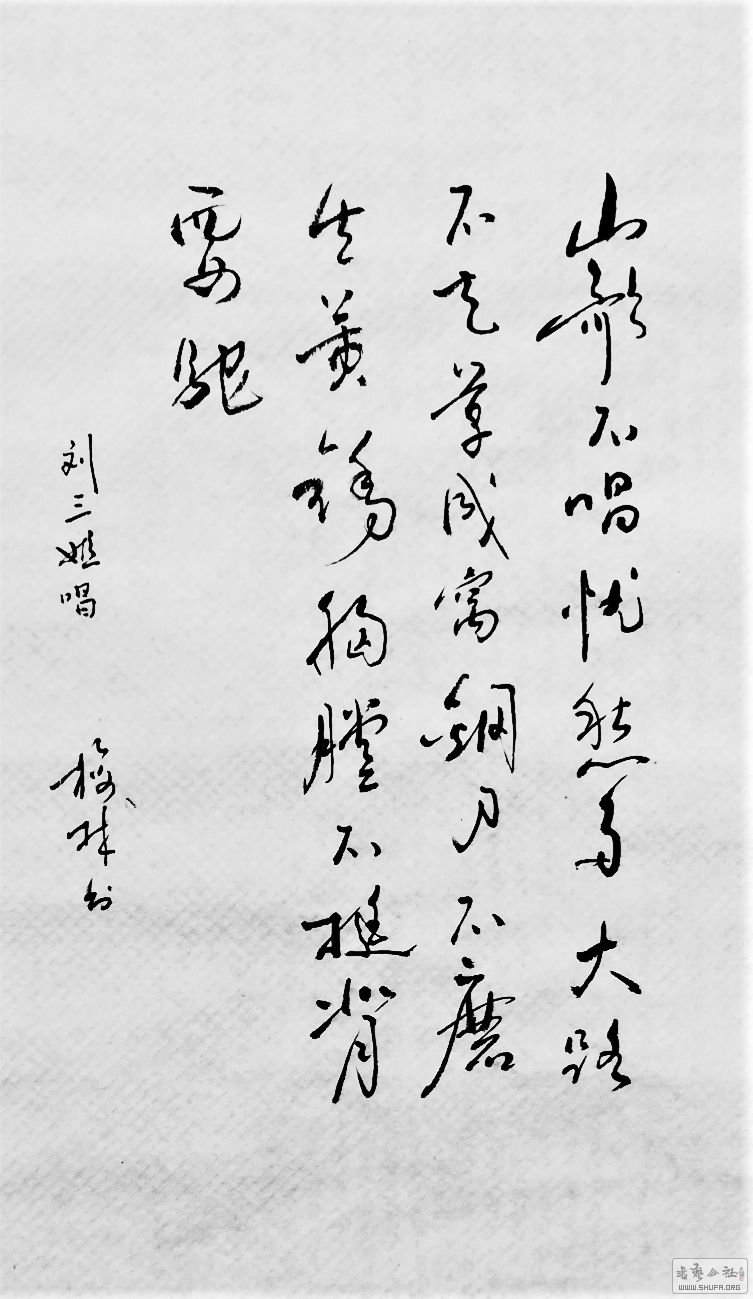 山歌不唱忧愁多大路
不走草成窝钢刀不磨
生黄锈胸膛不挺背
要驼
刘三姐唱
书艺公社
WWW.SHUFA.ORG